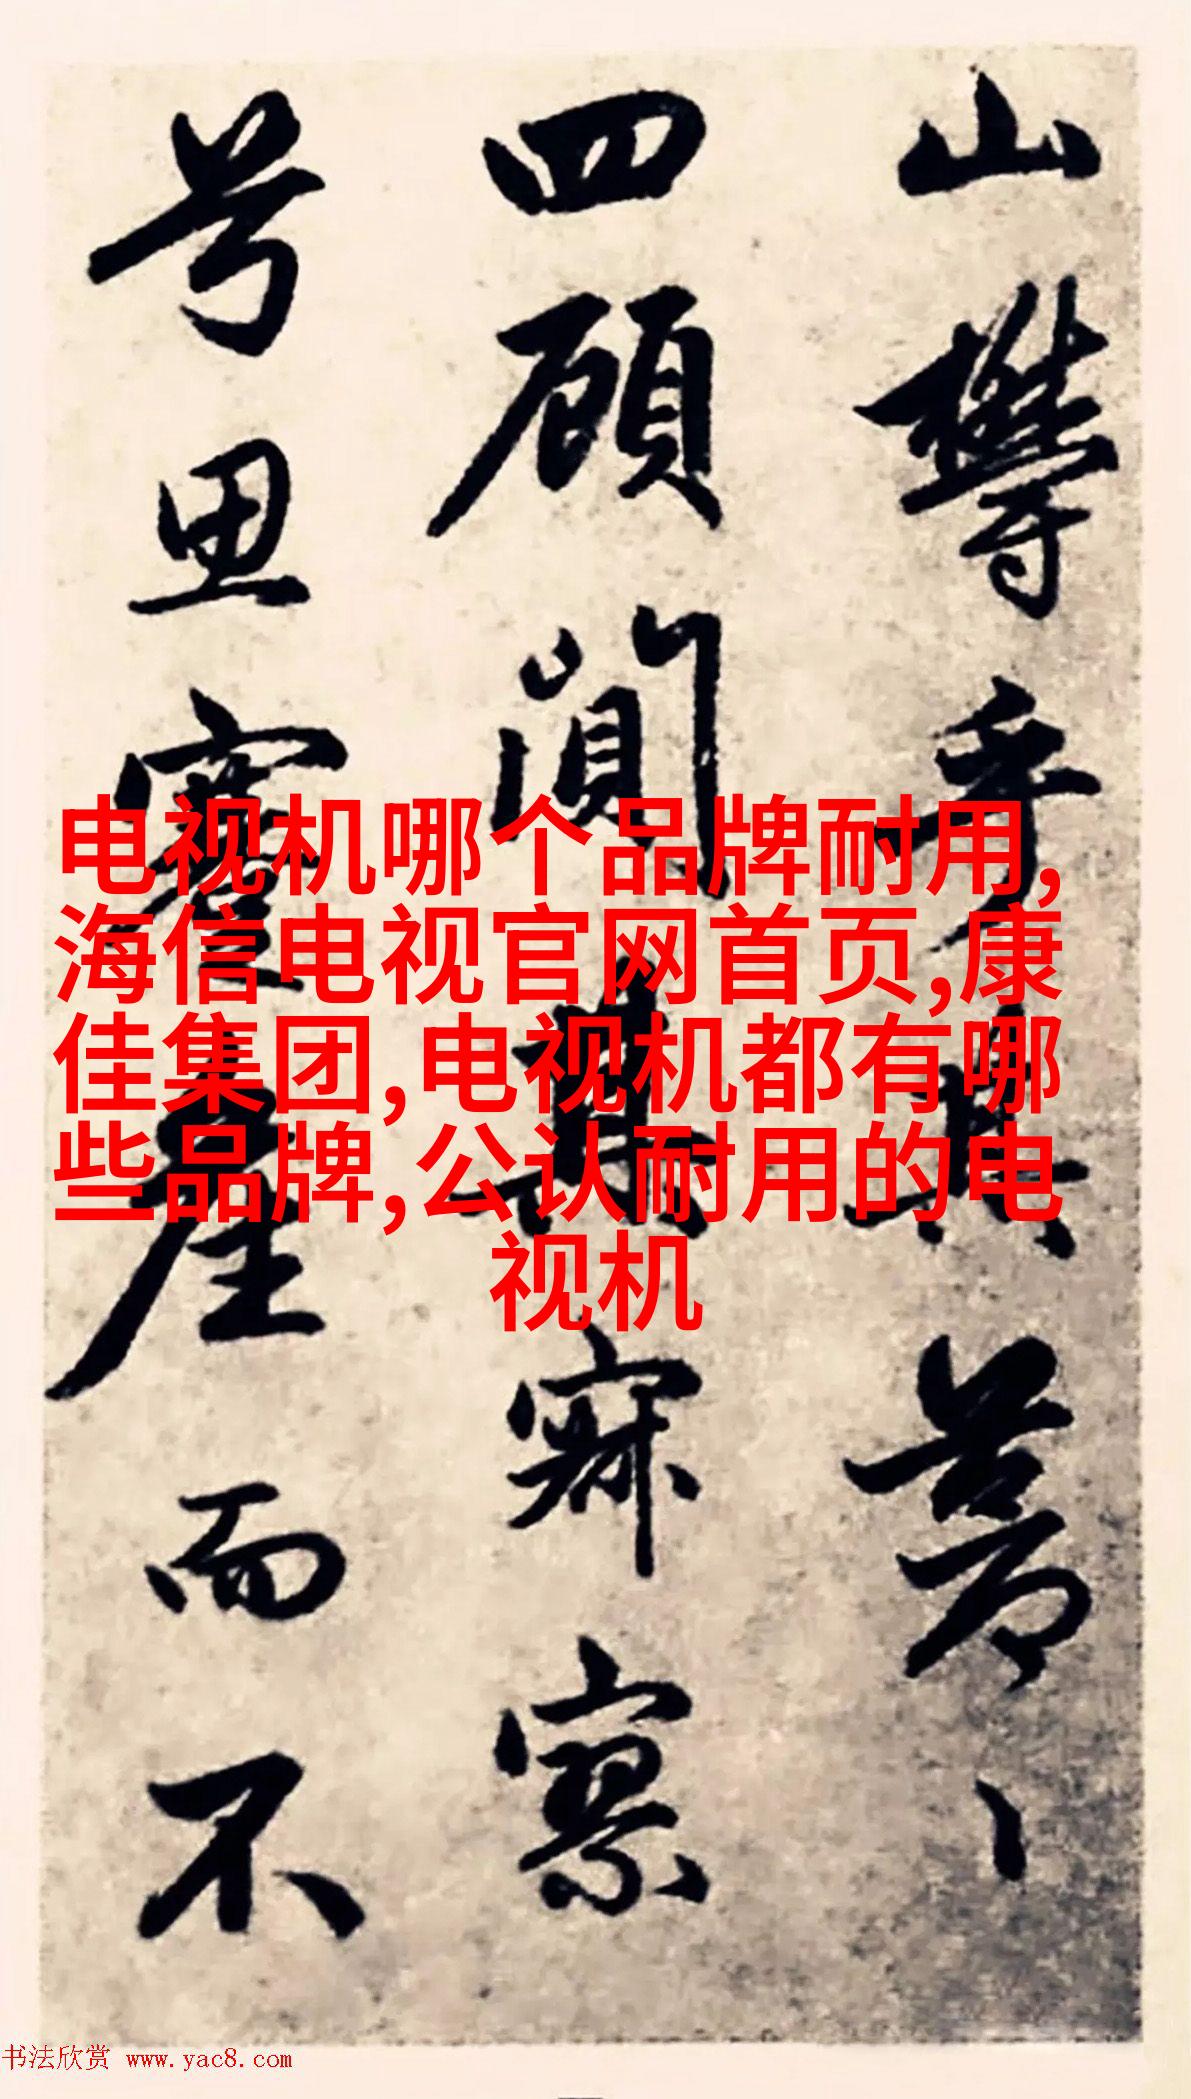 山欝乎其蒼〻
四顧闃其寂寥
兮思產而不
电视机哪个品牌耐用,
海信电视官网首页,康
佳集团,电视机都有哪
些品牌,公认耐用的电
视机
书法欣赏 www.yac8.com